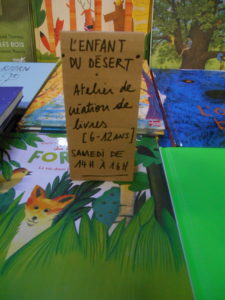 LES BOIS
L'ENFANT
DU DÉSERT
Atelier de
création de
livres
[6-12 ANS]
SAMEDI DE
14H À 16H
FOR